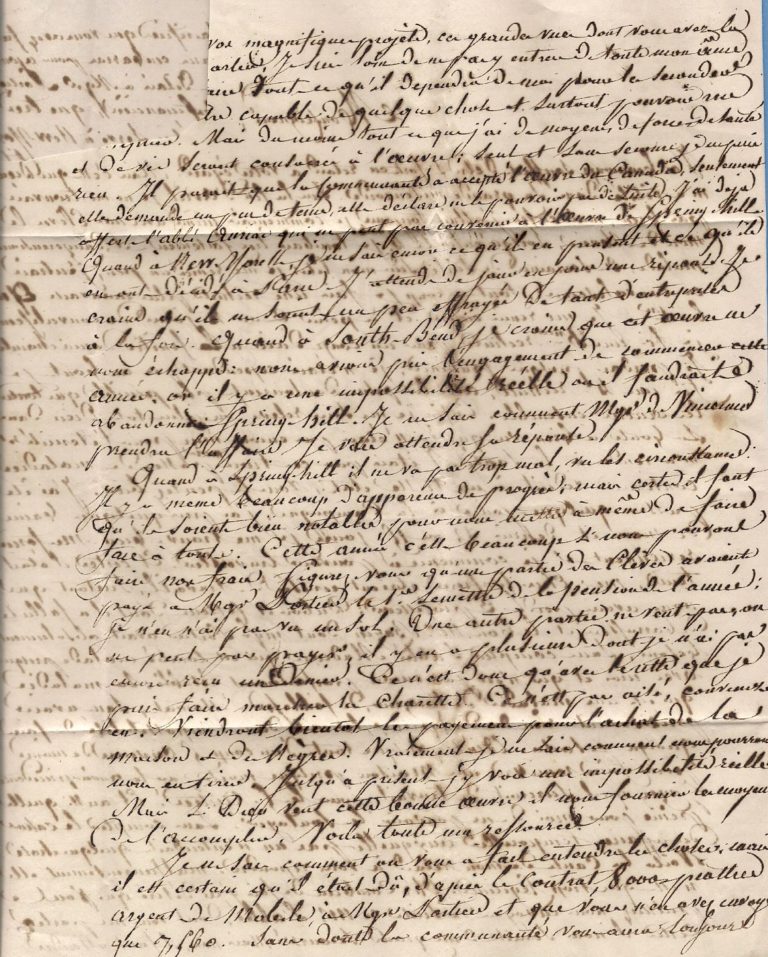 vos magnifiques projets, ces grandes vues dont vous avez
Je suis loin de ne pas y entrer de toute mon âme
tout ce qu'il dépendra de moi pour les seconder
capable de quelque chose et surtout pouvoir me
Mais du moins tout ce que j'ai de moyens, de force, de santé
et de vie seront consacrés à l'œuvre; seul et sans secours, je ne puis
rien. Il parait que la Communauté a accepté l'œuvre du Canada, seulement
elle demande un peu de tems, elle déclare ne le pouvoir pas de suite. J'ai déjà
offert l'abbé qui ne peut pas convenir à l'œuvre de Spring-hill
Quand à New York je ne sais encore ce qu'ils en pensent et ce qu'ils
en ont décidé à J'attends de jour en jour une réponse. Je
crains qu'ils ne soient un peu effrayés de tant d'entreprises
à la fois. Quand à South-Bend, je crains que cet œuvre ne
nous échappe: nous avions pris l'engagement de commencer cette
année, or il y a une impossibilité réelle ou il faudrait
abandonner Spring-hill. Je ne sais comment Mgr de Vincennes
prendra l'affaire. Je vais attendre sa réponse.
Quand à Spring-hill il ne va pas trop mal, vu les circonstances:
Il y a même beaucoup d'apparence de progrès; mais certes il faut
qu'ils soient bien notables pour nous mettre à même de faire
face à tout. Cette année c'est beaucoup si nous pouvons
faire nos frais. Figurez vous qu'une partie des Elèves avaient
payé à Mgr Portier le 1er Semestre de la pension de l'année:
Je n'en n'ai pas vu un sol. Une autre partie ne veut pas, ou
ne peut pas payer, il y en a plusieurs dont je n'ai pas
encore reçu un denier. Ce n'est donc qu'avec le reste que je
puis faire marcher la charette. Ce n'est pas aisé, convenez
en. Viendront bientot les payemens pour l'achat de la
maison et des Nègres. Vraiment je ne sais comment nous pourrons
nous en tirer. Jusqu'à présent j'y vois une impossibilité réelle
Mais si Dieu veut cette bonne œuvre il nous fournira les moyens
de l'accomplir. Voila toutes mes ressources
Je ne sais comment on vous a fait entendre les choses; mais
il est certain qu'il était dû, d'après le Contrat, 8000 piastres
argent de Mobile à Mgr Portier et que vous n'en avez envoyé
que 7,560. Sans doute la communauté vous aura toujours